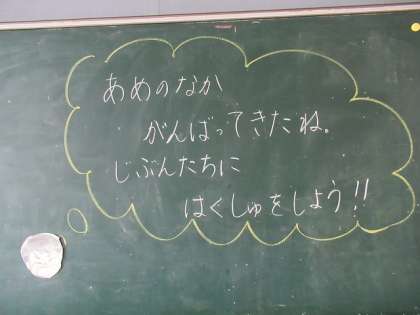 あめのなか
がんばってきたね。
じぶんたちに
はくしゅをしよう!!